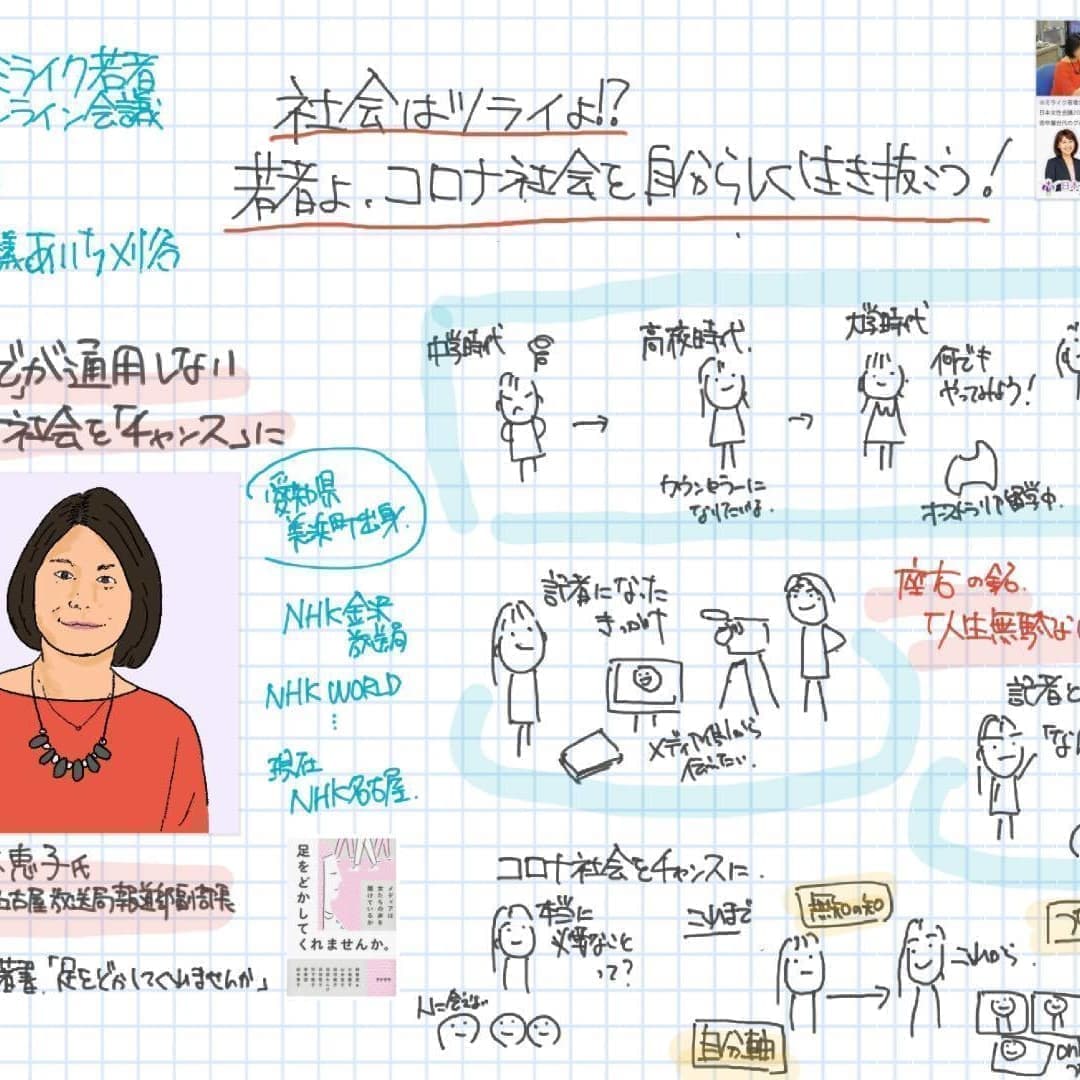 ミライク若者
ンライン会議
社会はツライよ!?
若者よ、コロナ社会を自分らしく生き抜こう!
議あいち刈谷
が通用しない
社会を「チャンス」に
中学時代
高校時代
大学時代
何でも
やってみよう!
カウンセラーに
なりたいな
オーストラリア留学中
愛知県
美浜町出身
NHK金沢
放送局
NHK WORLD
現在
NHK名古屋
記者になった
きっかけ
メディア側から
伝えたい
座右の銘
「人生無駄な
記者と
恵子氏
名古屋放送局報道部副部長
著「足をどかしてくれませんか」
足をどかして
くれませんか。
メディアは
女たちの声を
届けているか
コロナ社会をチャンスに
本当に
必要なこと
って?
人に会えない
これまで
無知の知
これから
自分軸